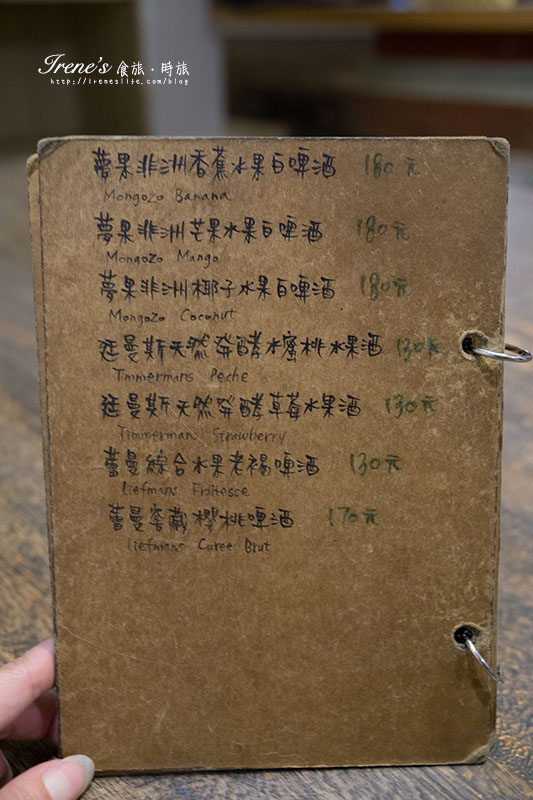 Irene's 食旅.時旅
http://ireneslife.com/blog
夢果非洲香蕉水果白啤酒 180元
Mongozo Banana
夢果非洲芒果水果白啤酒 180元
Mongozo Mango
夢果非洲椰子水果白啤酒 180元
Mongozo Coconut
廷曼斯天然發酵水蜜桃水果酒 130元
Timmermans Peche
廷曼斯天然發酵草莓水果酒 130元
Timmermans Strawberry
蕾曼綜合水果老褐啤酒 130元
Liefmans Fruitesse
蕾曼窖藏櫻桃啤酒 170元
Liefmans Cuvee Brut